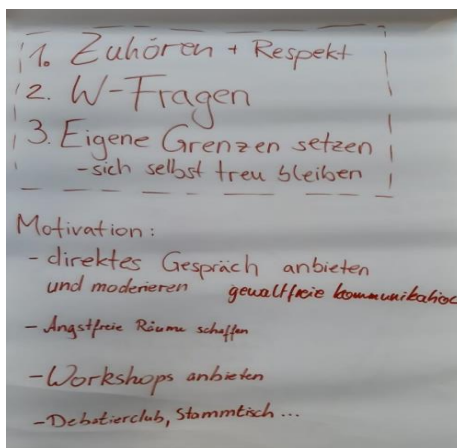 1. Zuhören + Respekt
2. W-Fragen
3. Eigene Grenzen setzen
- sich selbst treu bleiben
Motivation:
- direktes Gespräch anbieten
und moderieren gewaltfreie kommunikation
- Angstfreie Räume schaffen
- Workshops anbieten
- Debattierclub, Stammtisch ...